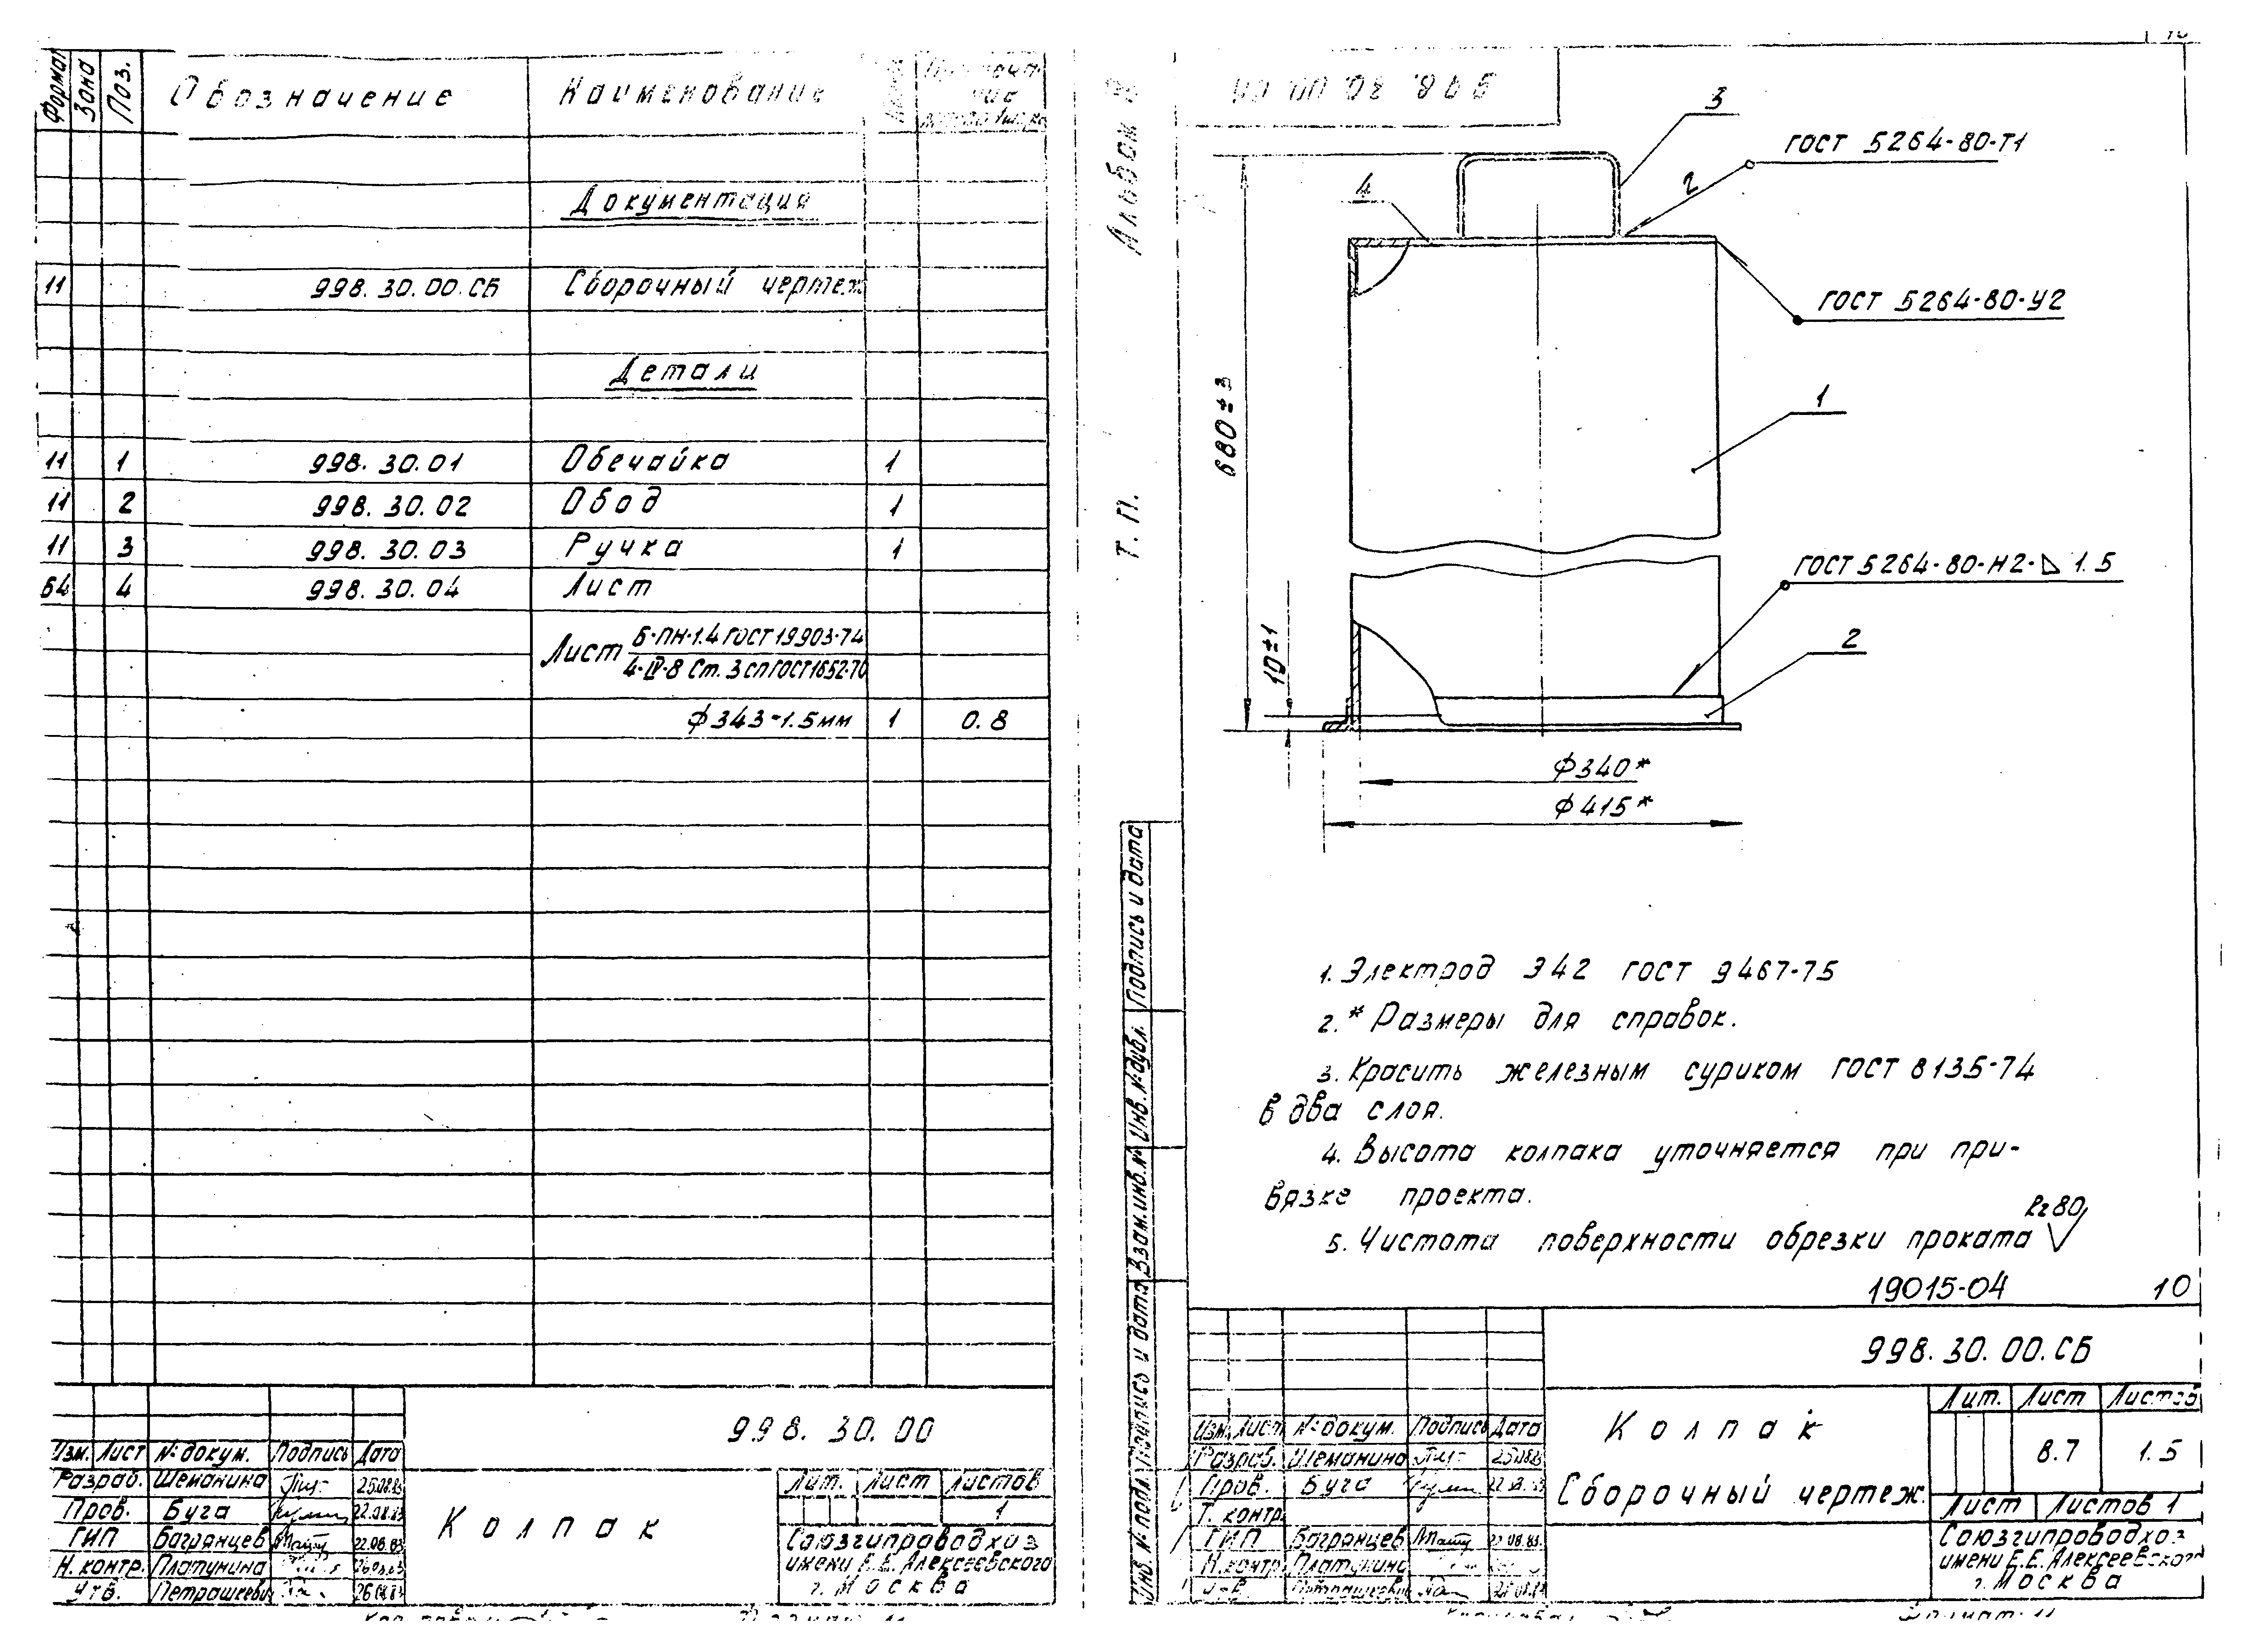 Формат Зона Поз. Обозначение Наименование
Документация
11 998.30.00.СБ Сборочный чертеж
Детали
11 1 998.30.01 Обечайка 1
11 2 998.30.02 Обод 1
11 3 998.30.03 Ручка 1
64 4 998.30.04 Лист
Лист Б-ПН-1.4 ГОСТ 19903-74
4-IV-8 Ст. 3 сп ГОСТ 1652-70
ф343-1.5мм 1 0.8
998.30.00
Изм. Лист № докум. Подпись Дата
Разраб. Шеманина 25.08.83
Пров. Буга 22.08.83
ГИП Багрянцев 22.08.83
Н.контр. Платунина
Утв. Петрашкевич 26.08.83
Колпак
Лит. Лист Листов
1
Союзгипроводхоз
имени Е.Е. Алексеевского
г. Москва
Альбом
Т.П.
998.30.00.СБ
3
ГОСТ 5264-80-Т1
2
4
ГОСТ 5264-80-У2
1
680±3
ГОСТ 5264-80-Н2-▷ 1.5
2
10±1
ф340*
ф415*
1. Электрод Э42 ГОСТ 9467-75
2.* Размеры для справок.
3. Красить железным суриком ГОСТ 8135-74
в два слоя.
4. Высота колпака уточняется при при-
вязке проекта.
5. Чистота поверхности обрезки проката Rz80
19015-04 10
Подпись и дата
Инв. № дубл.
Взам. инв. №
Подпись и дата
Инв. № подл.
998.30.00.СБ
Изм. Лист № докум. Подпись Дата
Разраб. Шеманина
Пров. Буга
Т. контр.
ГИП Багрянцев
Н.контр. Платунина
Петрашкевич
Колпак
Сборочный чертеж.
Лит. Лист Листов
8.7 1.5
Лист Листов 1
Союзгипроводхоз
имени Е.Е. Алексеевского
г. Москва
Формат 11